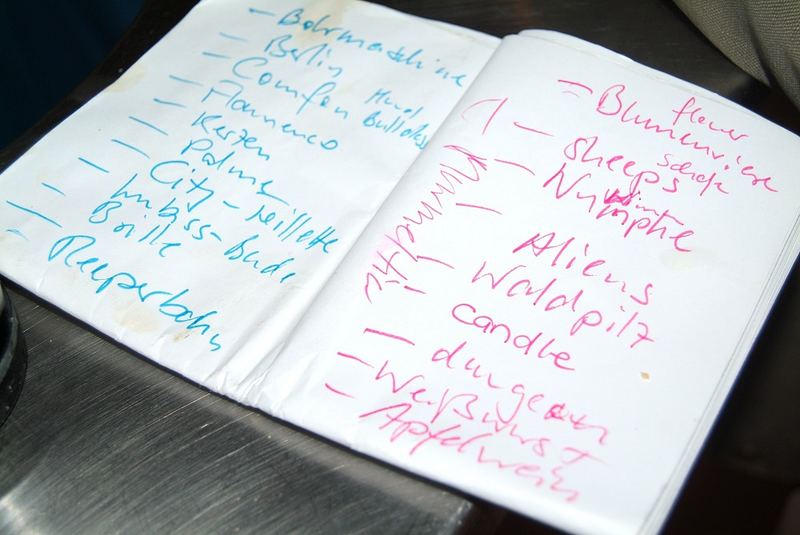 - Bohrmaschine
- Berlin
- Comfon Hund
- Flamenco Bulldog
- Kerzen
- Palme
- City-Toilette
- Imbiss-Bude
- Brille
- Reeperbahn
flower
- Blumenwiese
- sheeps schafe
- Nymphe
- Aliens
- Waldpilz
candle
- dungeon
- Weißwurst
- Apfelwein